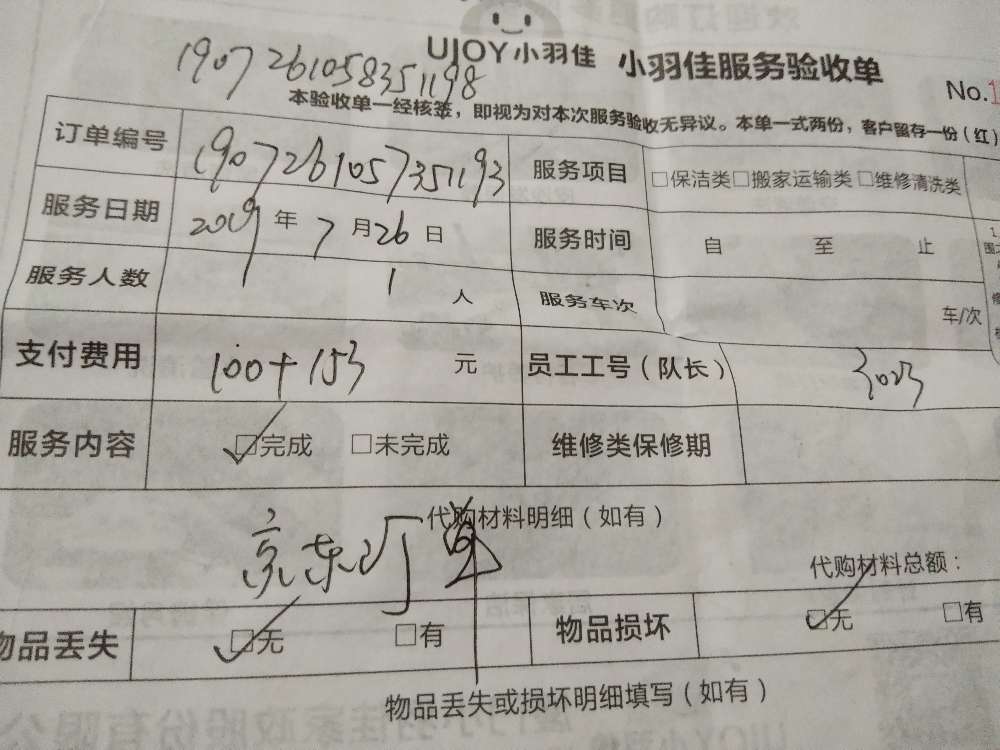 UJOY小羽佳 小羽佳服务验收单
1907261058351198
No.1
本验收单一经核签，即视为对本次服务验收无异议。本单一式两份，客户留存一份（红）
订单编号 1907261057351193 服务项目 □保洁类□搬家运输类□维修清洗类
服务日期 2019年7月26日 服务时间 自 至 止
服务人数 1人 服务车次 车/次
支付费用 100+153 元 员工工号（队长） 3023
服务内容 ☑完成 □未完成 维修类保修期
代购材料明细（如有）
京东订单
代购材料总额：
物品丢失 ☑无 □有 物品损坏 ☑无 □有
物品丢失或损坏明细填写（如有）